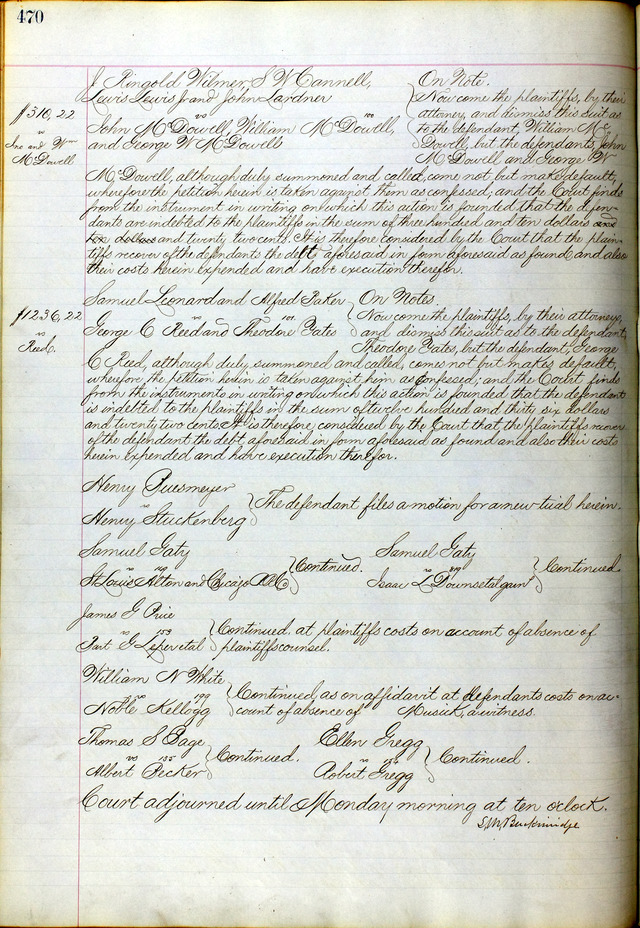 470
J. Ringold Wilmer, S W Cannell,
Lewis Lewis Jr and John Lardner
vs 100
John McDowell, William McDowell,
and George W McDowell
$310,22
vs
Jno and Wm
McDowell
On Note.
Now come the plaintiffs, by their
attorney, and dismiss this suit as
to the defendant, William Mc
Dowell, but the defendants, John
McDowell and George W
McDowell, although duly summoned and called, come not but make default,
wherefore the petition herein is taken against them as confessed, and the Court finds
from the instrument in writing on which this action is founded that the defen-
dants are indebted to the plaintiffs in the sum of three hundred and ten dollars and
ten dollars and twenty two cents. It is therefore considered by the Court that the plain-
tiffs recover of the defendants the debt aforesaid in form aforesaid as found and also
their costs herein expended and have execution therefor.
Samuel Leonard and Alfred Baker
vs 101
George C Reed and Theodore Yates
$1236,22
vs
Reed.
On Notes.
Now come the plaintiffs, by their attorney,
and dismiss this suit as to the defendant,
Theodore Yates, but the defendant, George
C Reed, although duly summoned and called, comes not but makes default,
wherefore the petition herein is taken against him as confessed, and the Court finds
from the instruments in writing on which this action is founded that the defendant
is indebted to the plaintiffs in the sum of twelve hundred and thirty six dollars
and twenty two cents. It is therefore considered by the Court that the plaintiffs recover
of the defendant the debt aforesaid in form aforesaid as found and also their costs
herein expended and have execution therefor.
Henry
vs
Henry Stuckenberg
The defendant files a motion for a new trial herein.
Samuel Gaty
vs
St Louis Alton and Chicago R R Co
Continued.
Samuel Gaty
vs
Isaac L
Continued
James G Price
vs 153
et al
Continued, at plaintiffs costs on account of absence of
plaintiffs counsel.
William N White
vs 199
Noble Kellogg
Continued, as on affidavit at defendants costs on ac-
count of absence of Musick, a witness.
Thomas S Page
vs 135
Albert Pecker
Continued.
Ellen Gregg
vs
Robert Gregg
Continued.
Court adjourned until Monday morning at ten oclock.